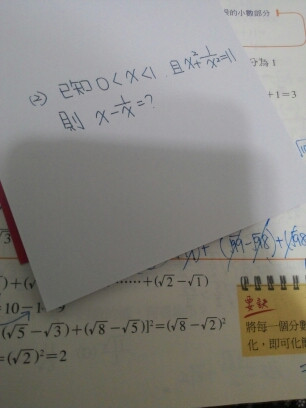 的小數部分
分為1
+1=3
(2) 已知 0<x<1 且 x²+1/x²=11
則 x-1/x=?
√3
)+( ……+(√2-√1)
=10-1=9
(√5-√3)+(√8-√5)]²=(√8-√2)²
=(√2)²=2
要訣
將每一個分
化,即可化